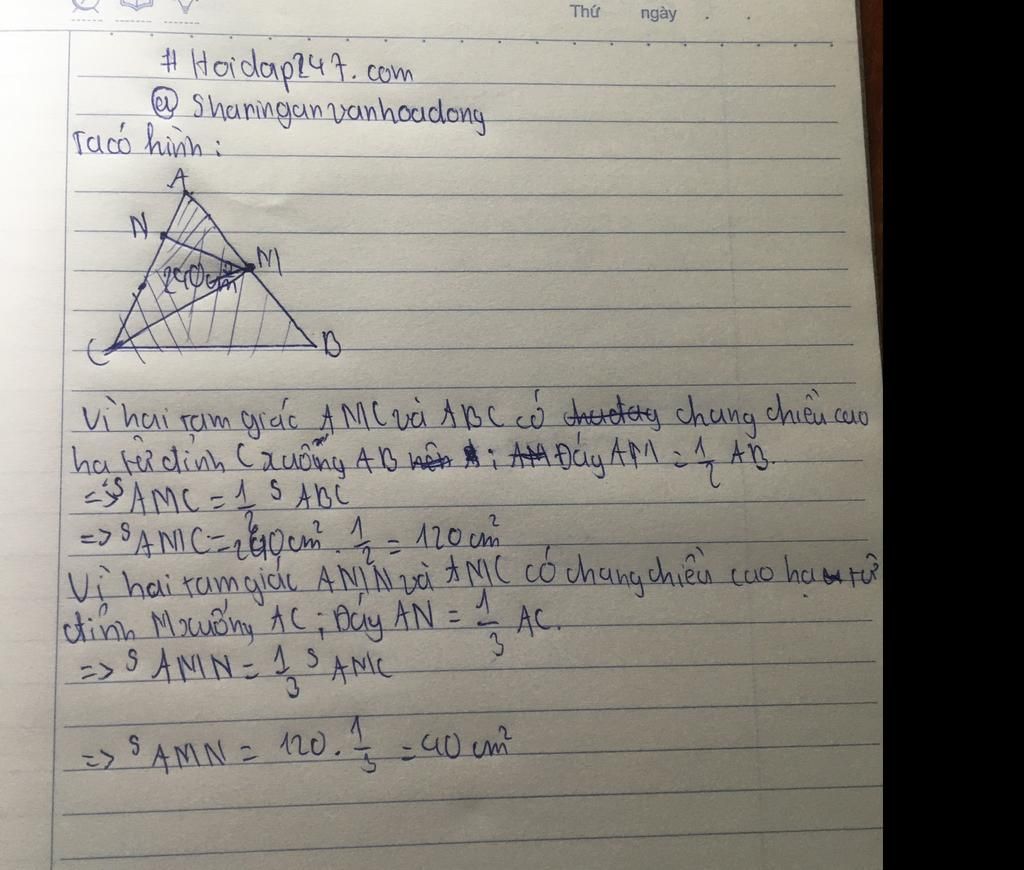 Thứ ngày
# Hoidap247.com
@ Sharinganvanhoadong
Ta có hình:
A
N
M
240cm²
C
B
Vì hai tam giác AMC và ABC có chung chiều cao
hạ từ đỉnh C xuống AB ; Đáy AM = 1/2 AB.
=> S AMC = 1/2 S ABC
=> S AMC = 240cm² . 1/2 = 120 cm²
Vì hai tam giác AMN và AMC có chung chiều cao hạ từ
đỉnh M xuống AC ; Đáy AN = 1/3 AC.
=> S AMN = 1/3 S AMC
=> S AMN = 120 . 1/3 = 40 cm²